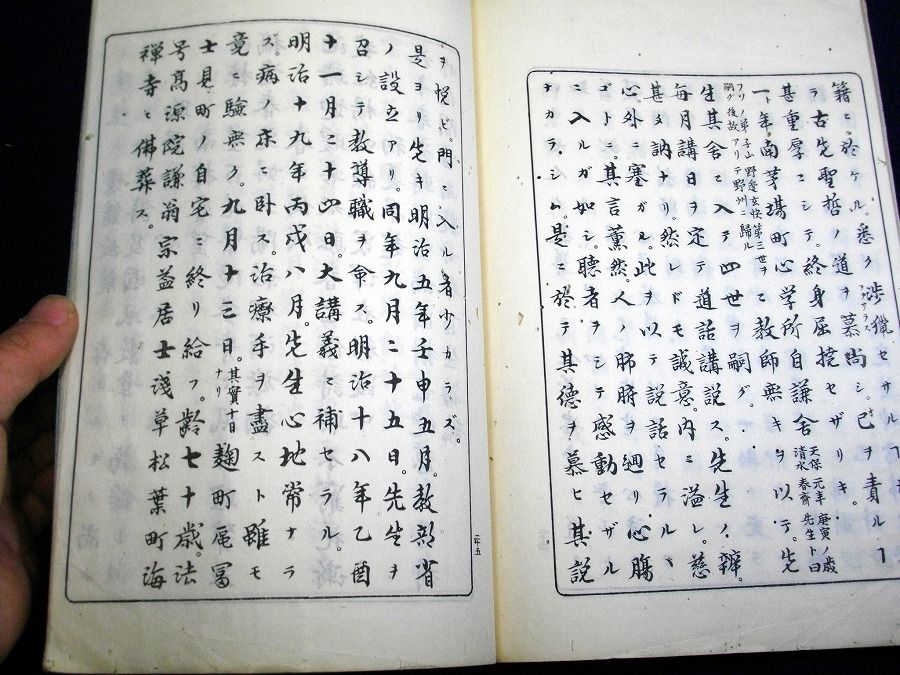 籍ニ於ケル。悉ク渉獵セザル
ラ古先聖哲ノ道ヲ慕尚シ。己ヲ責ル
甚重厚ニシテ。終身屈撓セザリキ。
天保元年庚寅ノ歳
清水春齋先生ト曰
一年。南茅場町心学所自謙舎ニ教師無キヲ以テ。先
フリノ弟子山野邊玄快第三世ヲ
嗣グ後故アリテ野州ニ歸ル
生其舎ニ入テ四世ヲ嗣グ。
毎月講日ヲ定テ道話講説ス。先生ノ辯。
甚タ訥ナリ。然レドモ誠意。内ニ溢レ。慈
心。外ニ塞ガル。此ヲ以テ説話セラルヽ
ゴトニ。其言薫然。人ノ肺腑ヲ廻リ心腸
ニ入ルガ如シ。聽者ヲシテ感動セザル
ナカラシム。是ニ於テ其德ヲ慕ヒ其説
ヲ悦ビ。門ニ入ル者少カラズ。
是ヨリ先キ明治五年壬申五月。教部省
ノ設立アリ。同年九月二十五日。先生ヲ
召シテ教導職ヲ命ス。明治十八年乙酉
十一月二十四日。大講義ニ補セラル。
明治十九年丙戌八月。先生心地常ナラ
ス。病ノ床ニ臥ス。治療手ヲ盡スト雖モ
竟ニ驗無ク。九月十三日。
其實十日
ナリ
麹町區冨
士見町ノ自宅ニ終リ給フ。齡七十歳。法
号高源院謙翁宗益居士淺草松葉町海
禪寺ニ佛葬ス。